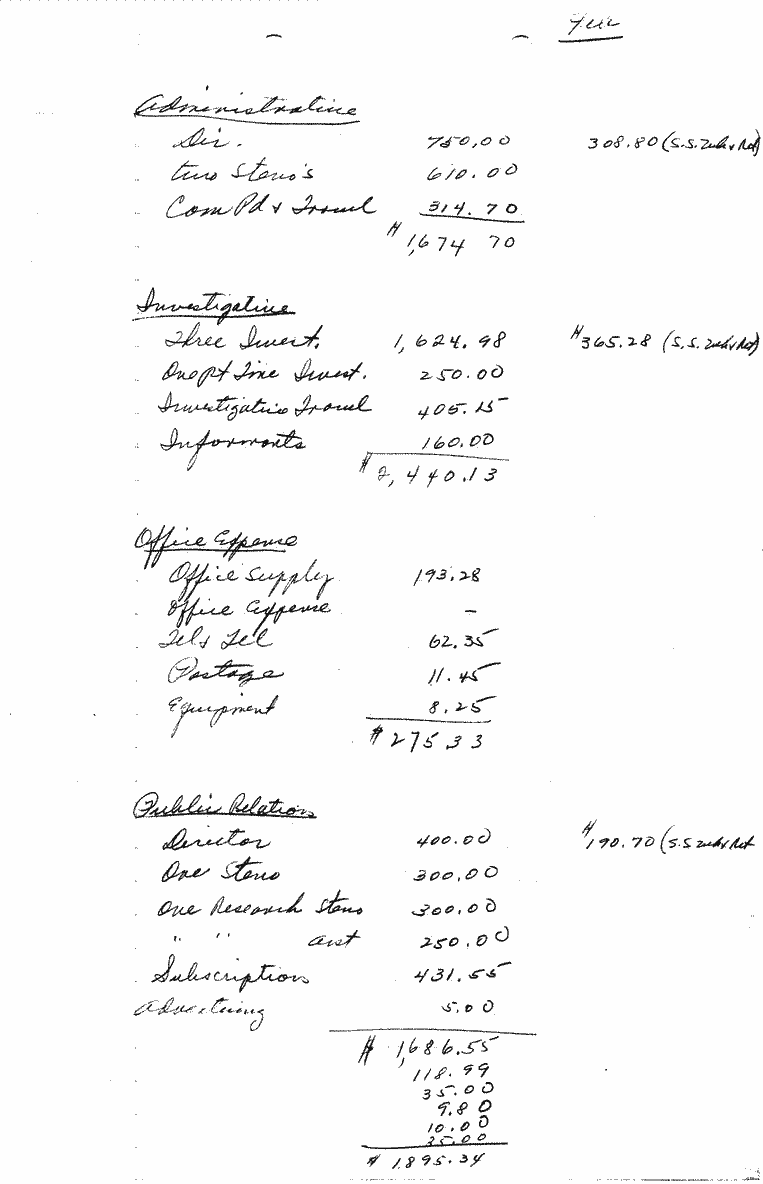 June
Administrative
Dir. 750.00 308.80 (S.S. Wh & Ret)
two Steno's 610.00
Com Pd & Travel 314.70
$ 1,674 70
Investigative
Three Invest. 1,624.98 $365.28 (S.S. Wh & Ret)
One pt Time Invest. 250.00
Investigative Travel 405.15
Informants 160.00
$ 2,440.13
Office Expense
Office Supply 193.28
Office Expense -
Tel & Tel 62.35
Postage 11.45
Equipment 8.25
$ 275 33
Public Relations
Director 400.00 $190.70 (S.S Wh & Ret
One Steno 300.00
One Research Steno 300.00
" " asst 250.00
Subscriptions 431.55
Advertising 5.00
$ 1,686.55
118.99
35.00
9.80
10.00
35.00
$ 1,895.34